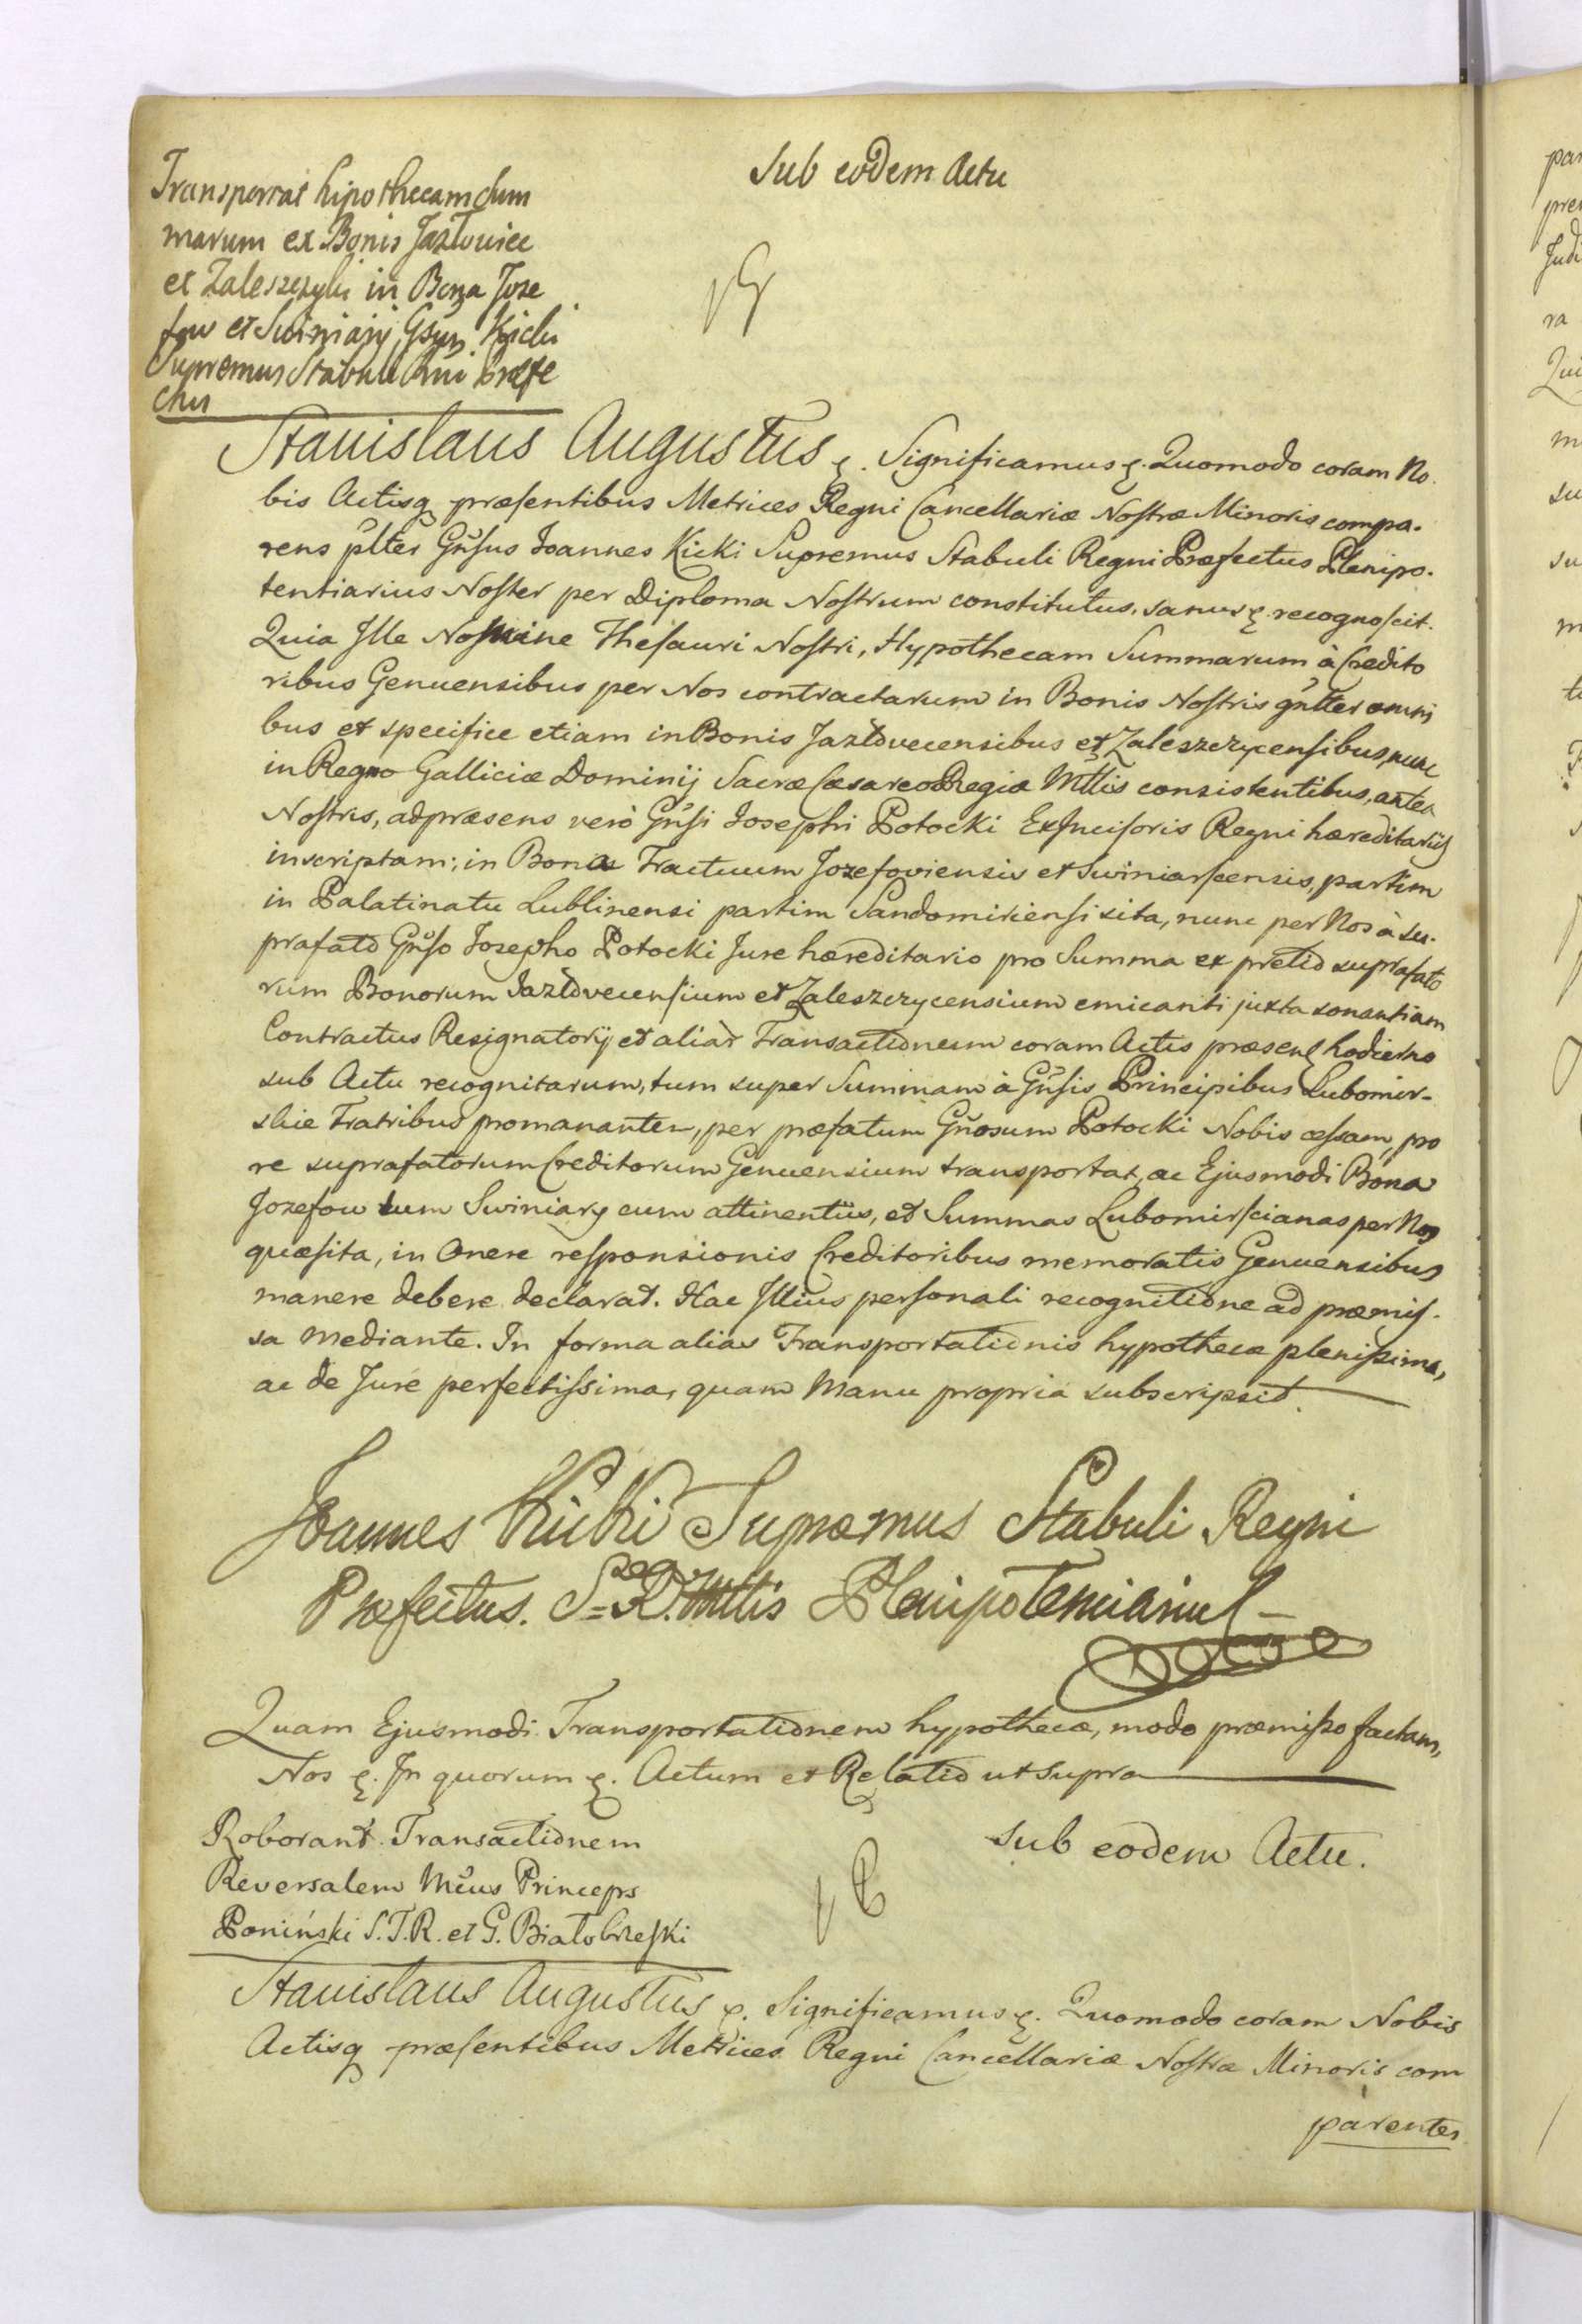 Sub eodem Actu
Transportat hipothecam Sum
marum ex Bonis Jazłowiec
et Zaleszczyki in Bona Joze
fow et Swiniary Gsus Kicki
Supremus Stabuli Rni Præfe
ctus
Stanislaus Augustus &. Significamus &. Quomodo coram No.
bis Actisq præsentibus Metrices Regni Cancellariæ Nostræ Minoris compa.
rens plter Gnsus Joannes Kicki Supremus Stabuli Regni Præfectus Plenipo.
tentiarius Noster per Diploma Nostrum constitutus, sanus &. recognoscit.
Quia Ille Nomine Thesauri Nostri, Hypothecam Summarum à Credito
ribus Genuensibus per Nos contractarum in Bonis Nostris gnlter omni
bus et specifice etiam in Bonis Jazłovecensibus et Zaleszczycensibus, nunc
in Regno Galliciæ Dominij Sacræ Cæsareo Regiæ Mttis consistentibus, antea
Nostris, ad præsens verò Gnsi Josephi Potocki Exincisoris Regni hæreditariis
inscriptam; in Bona Tractuum Jozefoviensis et Swiniarscensis, partim
in Palatinatu Lublinensi partim Sandomiriensi sita, nunc per Nos à su.
præfato Gnso Josepho Potocki Jure hæreditario pro Summa ex pretio suprafato
rum Bonorum Jazłovecensium et Zaleszczycensium emicanti juxta sonantiam
Contractus Resignatorij et aliar Transactionum coram Actis præsent hodierno
sub Actu recognitarum, tum super Summam à Gnsis Principibus Lubomir-
skie Fratribus promanantem, per præfatum Gnosum Potocki Nobis cessam, pro
re suprafatorum Creditorum Genuensium transportat, ac Ejusmodi Bona
Jozefow tum Swiniary cum attinentiis, et Summas Lubomirscianas per Nos
quæsita, in Onere responsionis Creditoribus memoratis Genuensibus
manere debere declarat. Hac Illius personali recognitione ad præmis.
sa mediante. In forma alias Transportationis hypothecæ plenissima,
ac de Jure perfectissima, quam Manu propria subscripsit.
Joannes Kicki Supræmus Stabuli Regni
Præfectus. S. R. Mttis Plenipotentiarius
Quam Ejusmodi Transportationem hypothecæ, modo præmisso factam,
Nos &. In quorum &. Actum et Relatio ut supra
Roborant Transactionem
Reversalem Mcus Princeps
Poniński S. T. R. et G. Białobrzeski
sub eodem Actu.
Stanislaus Augustus &. Significamus &. Quomodo coram Nobis
Actisq præsentibus Metrices Regni Cancellariæ Nostræ Minoris com
parentes